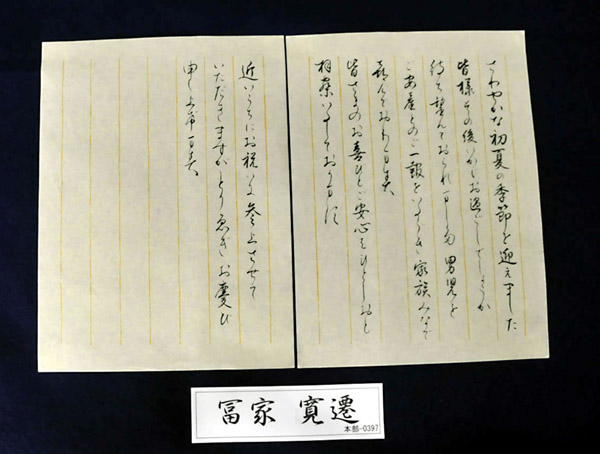 さわやかな初夏の季節を迎えました
皆様その後いかがお過ごしでしょうか
待ち望んでおられました男児を
ご安産とのご一報をいただき家族みなで
喜んでおります
皆さまのお喜びとご安心もひとしおと
拝察いたしております
近いうちにお祝いに参上させて
いただきますがとり急ぎお慶び
申し上げます
冨家 寛遷
本部-0397